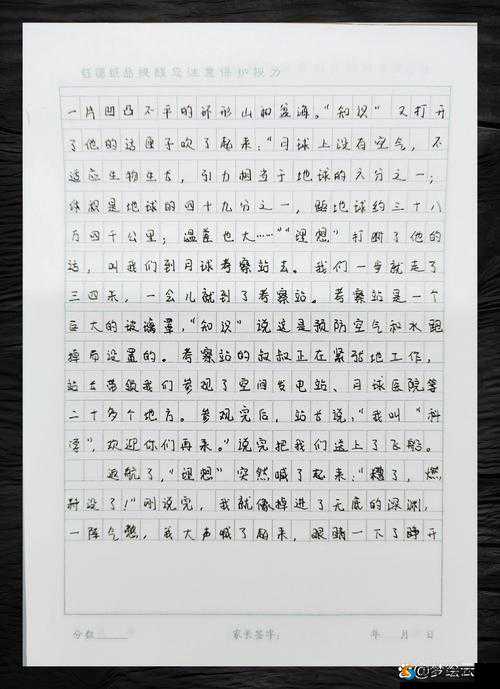 红领纸品提醒您注意保护视力
一片凹凸不平的环形山和尘海。“知识”又打开
了他的话匣子吹了起来:“月球上没有空气,不
适应生物生长,引力相当于地球的六分之一;
体积是地球的四十九分之一,距地球约三十八
万四千公里;温差也大……”“理想”打断了他的
话,叫我们到月球考察站去。我们一步就走了
三四米,一会儿就到了考察站。考察站是一个
巨大的玻璃罩,“知识”说这是预防空气和水跑
掉而设置的。考察站的叔叔正在紧张地工作,
站长带领我们参观了空间发电站、月球医院等
二十多个地方。参观完后,站长说:“我叫“科
学”,欢迎你们再来。”说完把我们送上了飞船。
返航了,“理想”突然喊了起来:“糟了,燃
料没了!”刚说完,我就像掉进了无底的深渊,
一阵气憋,我大声喊了起来,眼睛一下了睁开
分数
家长签字:
年 月 日
@梦绘云